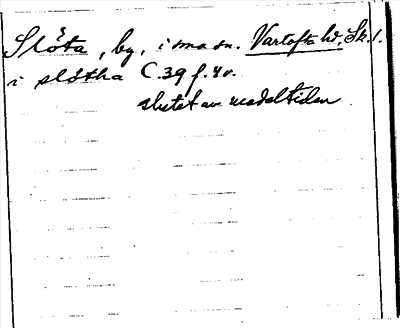 Slöta, by, i sma sn. Vartofta hd, Sk. l.
i slötha C 39 f. 4v.
slutet av medeltiden